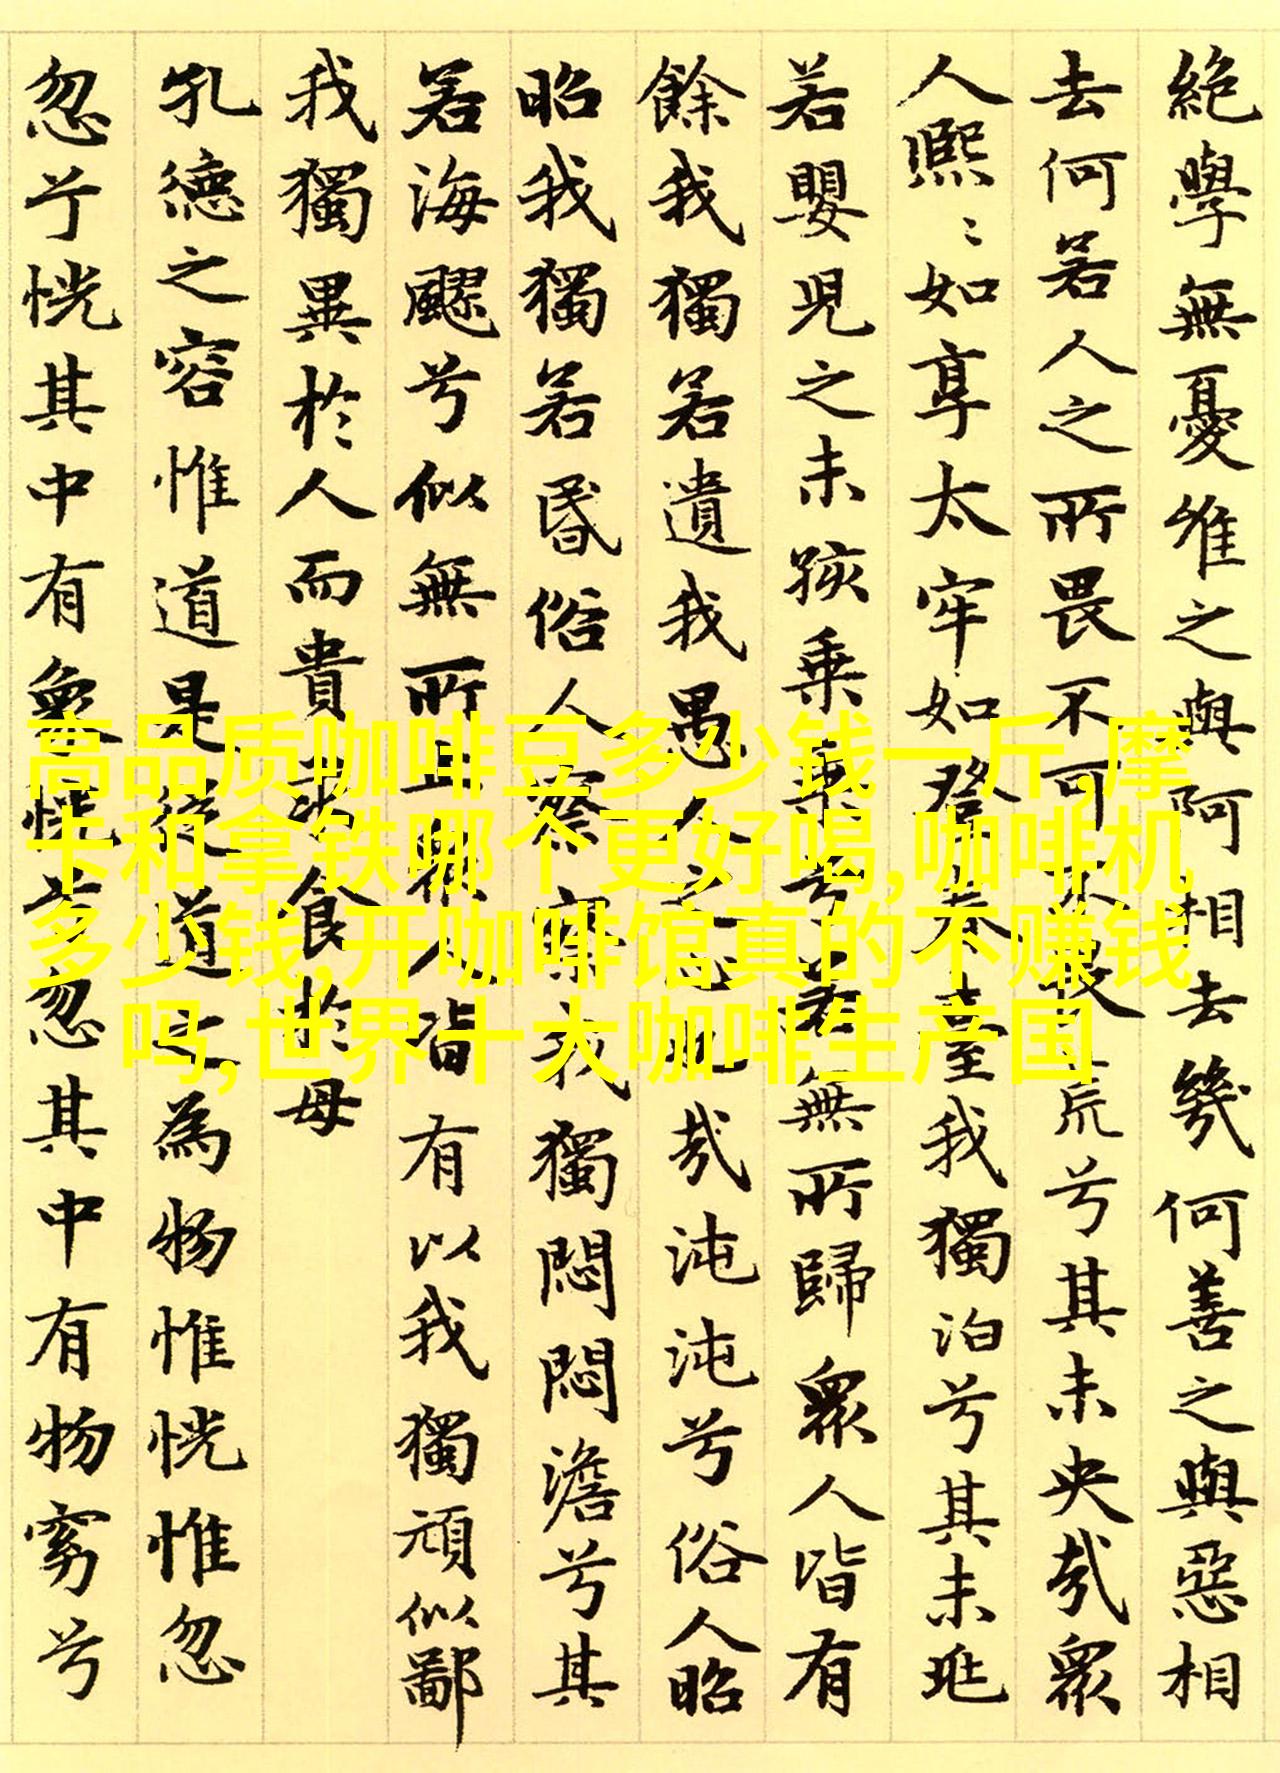 絶學無憂唯之與阿相去幾何善之與惡相
去何若人之所畏不可不畏荒兮其未央哉衆
人熙〻如享太牢如登春臺我獨泊兮其未兆
若嬰兒之未孩乘乘兮若無所歸衆人皆有
餘我獨若遺我愚人之心也哉沌沌兮俗人昭
昭我獨若昏俗人察察我獨悶悶澹兮其
若海飂兮似無所止衆人皆有以我獨頑似鄙
我獨異於人而貴求食於母
孔德之容惟道是從道之為物惟恍惟忽
忽兮恍其中有象恍兮忽其中有物窈兮
高品质咖啡豆多少钱一斤,摩
卡和拿铁哪个更好喝,咖啡机
多少钱,开咖啡馆真的不赚钱
吗,世界十大咖啡生产国